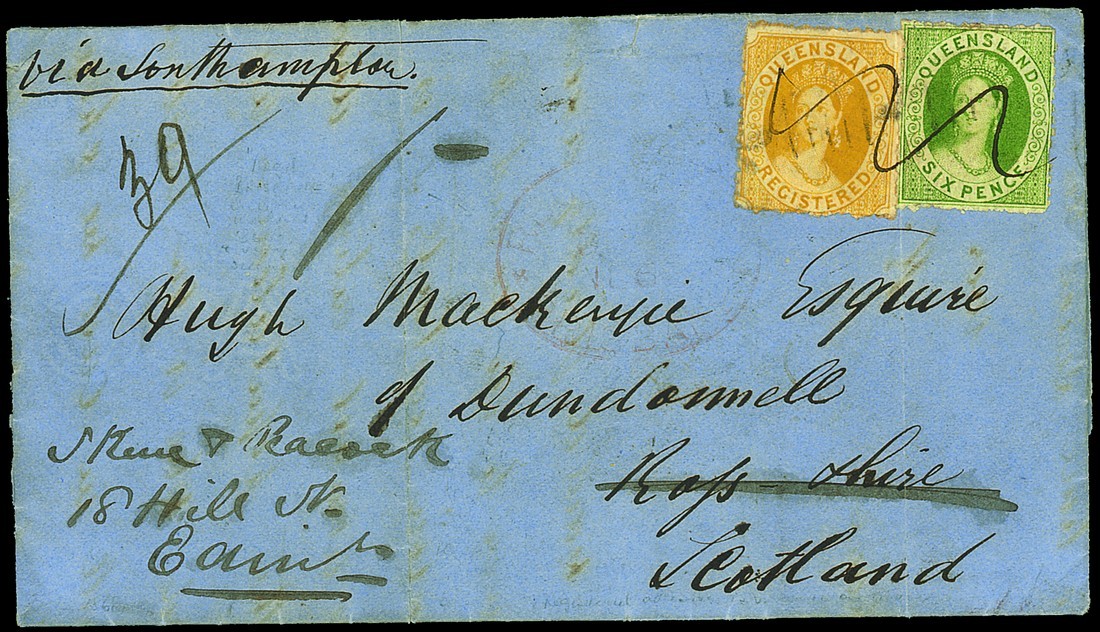 via Southampton.
QUEENSLAND
REGISTERED
QUEENSLAND
SIX PENCE
39
Hugh Mackenzie Esquire
of Dundonnell
Ross-shire
Scotland
Skene & Peacock
18 Hill St.
Edinb